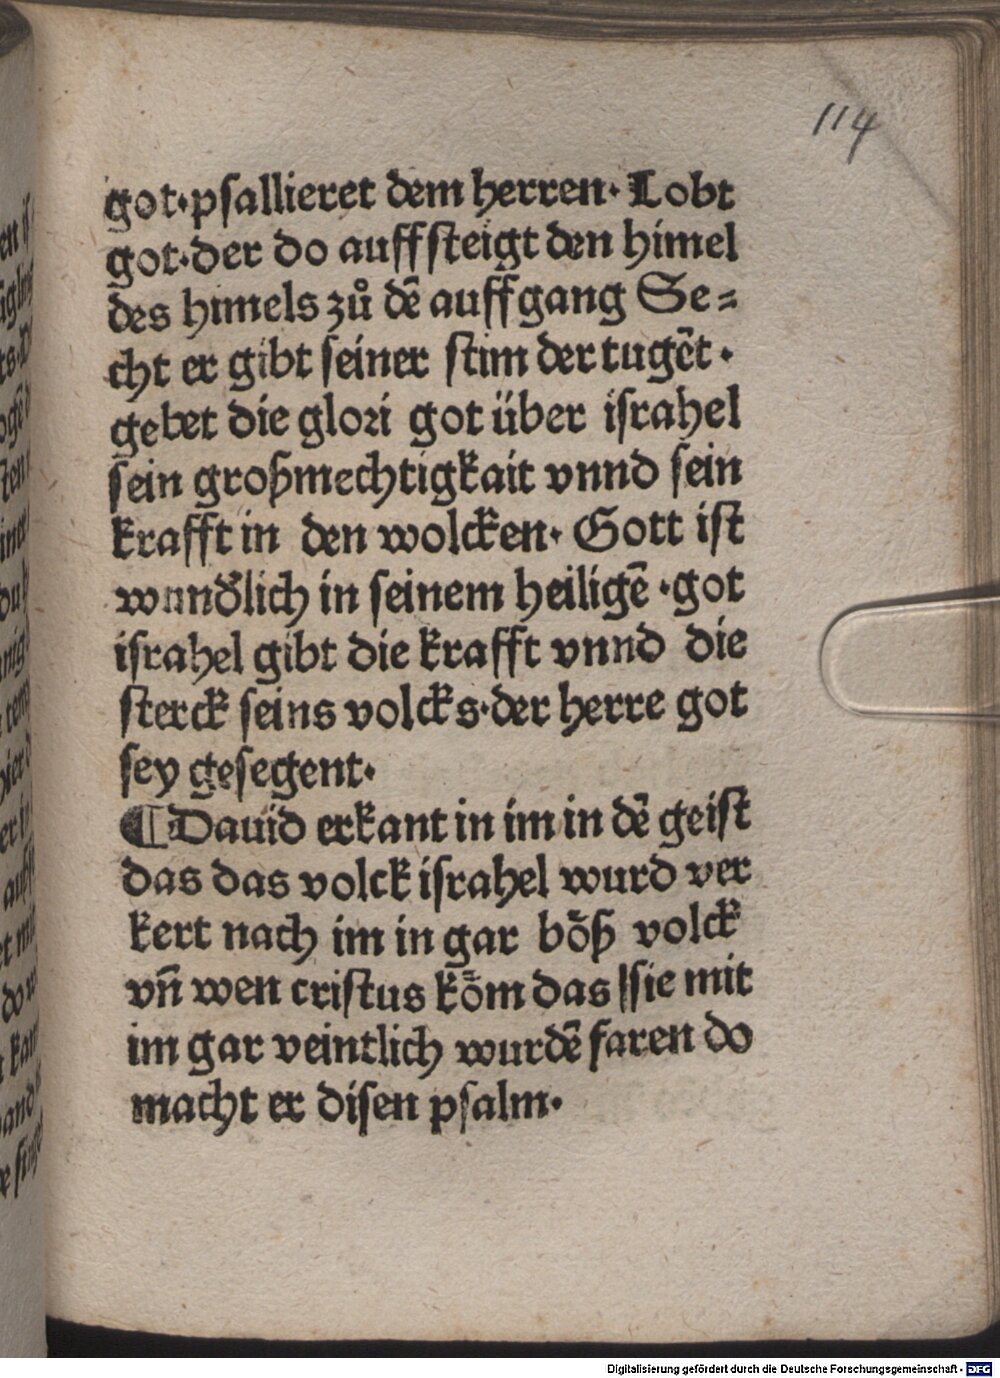 114
got·psallieret dem herren· Lobt
got·der do auffsteigt den himel
des himels zů dē auffgang Se=
cht er gibt seiner stim der tugēt·
gebet die glori got über israhel
sein großmechtigkait vnnd sein
krafft in den wolcken· Gott ist
wundʼlich in seinem heiligē·got
israhel gibt die krafft vnnd die
sterck seins volcks·der herre got
sey gesegent·
¶Dauid erkant in im in dē geist
das das volck israhel wurd ver
kert nach im in gar böß volck
vn̄ wen cristus köm das sie mit
im gar veintlich wurdē faren do
macht er disen psalm·
Digitalisierung gefördert durch die Deutsche Forschungsgemeinschaft - DFG